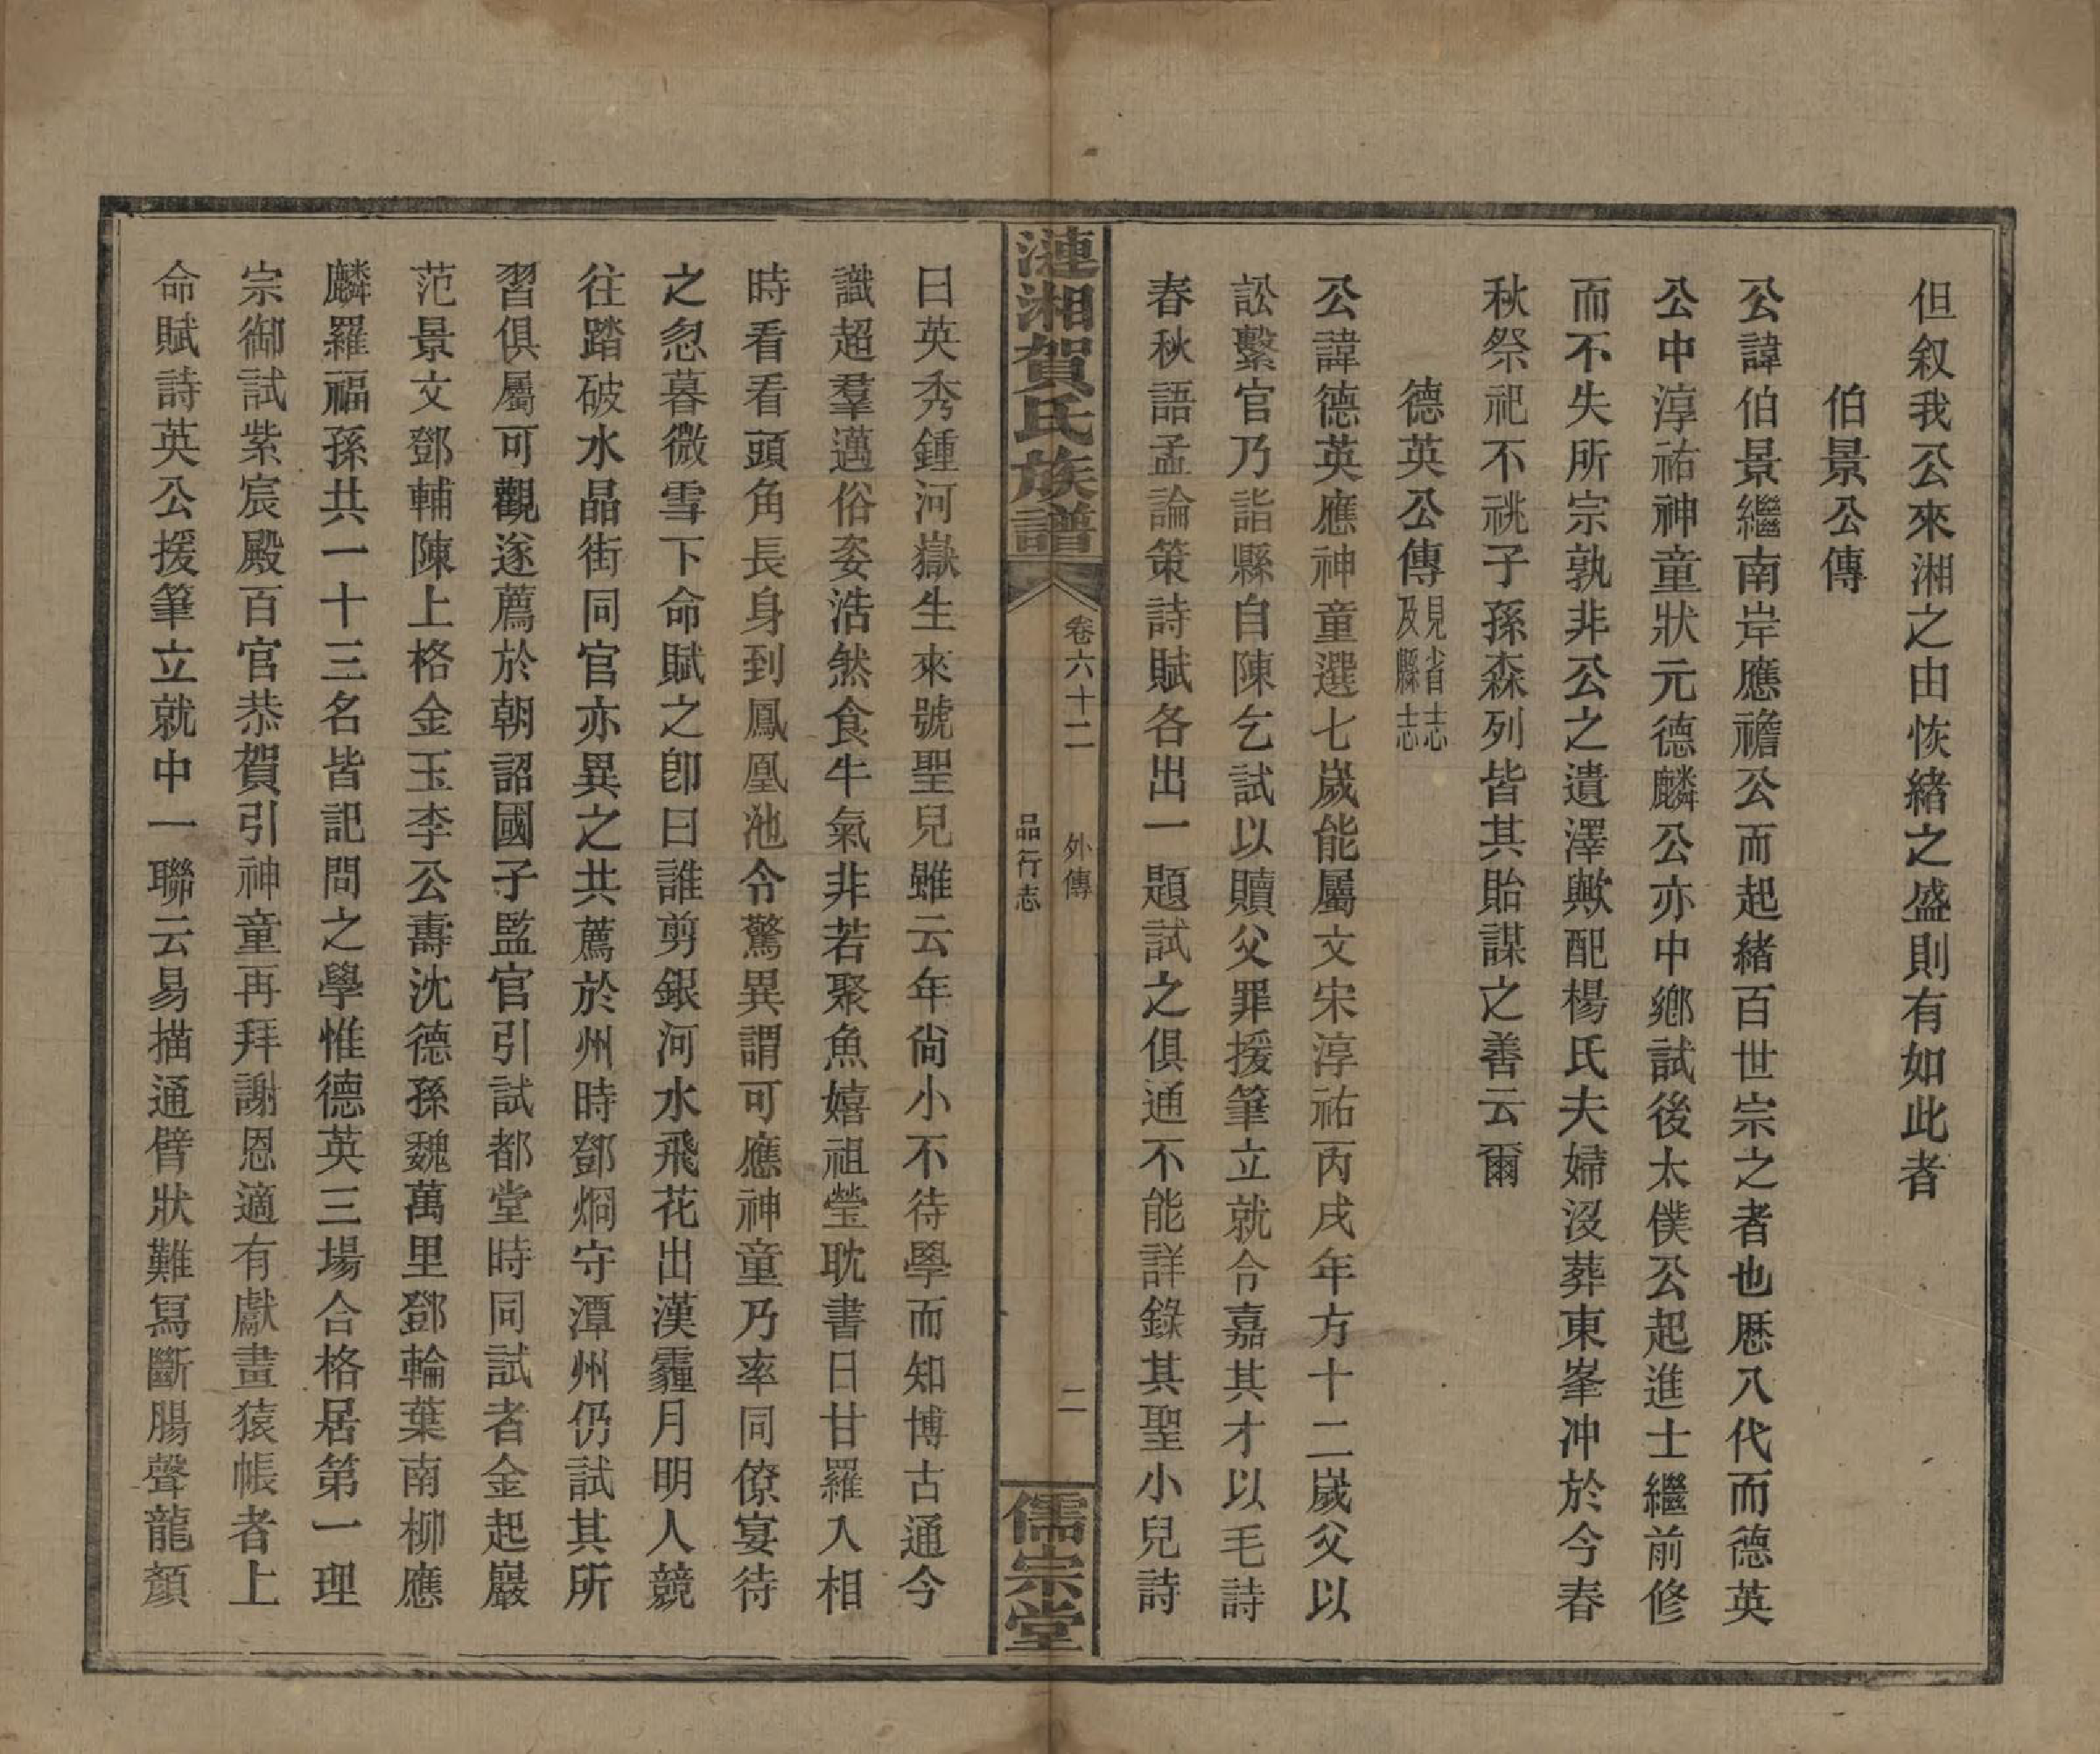 但叙我公來湘之由恢緒之盛則有如此者
伯景公傳
公諱伯景繼南岸應襜公而起緒百世宗之者也歷八代而德英
公中淳祐神童狀元德麟公亦中鄉試後太僕公起進士繼前修
而不失所宗孰非公之遺澤歟配楊氏夫婦沒葬東峯冲於今春
秋祭祀不祧子孫森列皆其貽謀之善云爾
德英公傳見省志及縣志
公諱德英應神童選七歲能屬文宋淳祐丙戌年方十二歲父以
訟繫官乃詣縣自陳乞試以贖父罪援筆立就令嘉其才以毛詩
春秋語孟論策詩賦各出一題試之俱通不能詳錄其聖小兒詩
漣湘賀氏族譜
卷六十二 外傳
品行志
二
儒宗堂
曰英秀鍾河嶽生來號聖兒雖云年尙小不待學而知博古通今
識超羣邁俗姿浩然食牛氣非若聚魚嬉祖瑩耽書日甘羅入相
時看看頭角長身到鳳凰池令驚異謂可應神童乃率同僚宴待
之忽暮微雪下命賦之卽曰誰剪銀河水飛花出漢霾月明人競
往踏破水晶街同官亦異之共薦於州時鄧烱守潭州仍試其所
習俱屬可觀遂薦於朝詔國子監官引試都堂時同試者金起巖
范景文鄧輔陳上格金玉李公壽沈德孫魏萬里鄧輪葉南柳應
麟羅福孫共一十三名皆記問之學惟德英三場合格居第一理
宗御試紫宸殿百官恭賀引神童再拜謝恩適有獻畫猿帳者上
命賦詩英公援筆立就中一聯云易描通臂狀難寫斷腸聲龍顏